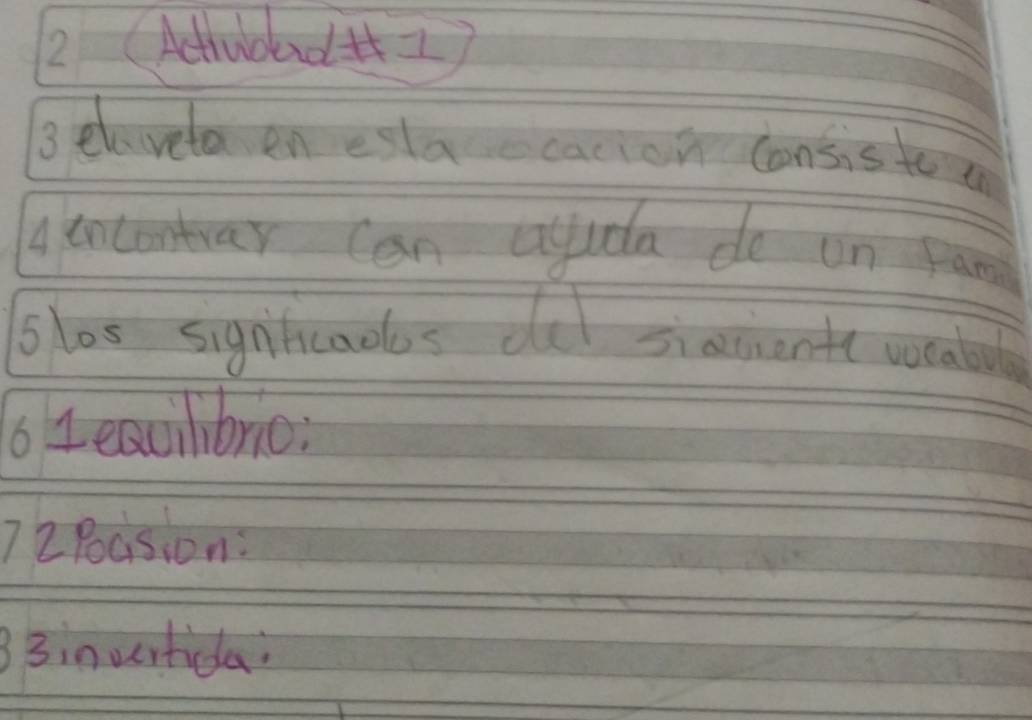 2 Actividad # 1
3 el veto en esta ocacion consiste en
4 encontrar con ayuda de un fam
5 los significados del siguiente vocabula
6 1 equilibrio:
7 2 Pocision:
8 3 invertida: